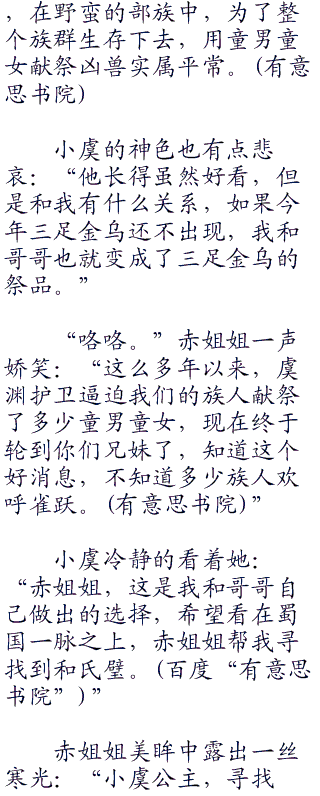 ，在野蛮的部族中，为了整
个族群生存下去，用童男童
女献祭凶兽实属平常。(有意
思书院)
小虞的神色也有点悲
哀：“他长得虽然好看，但
是和我有什么关系，如果今
年三足金乌还不出现，我和
哥哥也就变成了三足金乌的
祭品。”
“咯咯。”赤姐姐一声
娇笑：“这么多年以来，虞
渊护卫逼迫我们的族人献祭
了多少童男童女，现在终于
轮到你们兄妹了，知道这个
好消息，不知道多少族人欢
呼雀跃。(有意思书院)”
小虞冷静的看着她：
“赤姐姐，这是我和哥哥自
己做出的选择，希望看在蜀
国一脉之上，赤姐姐帮我寻
找到和氏璧。(百度“有意思
书院”)”
赤姐姐美眸中露出一丝
寒光：“小虞公主，寻找